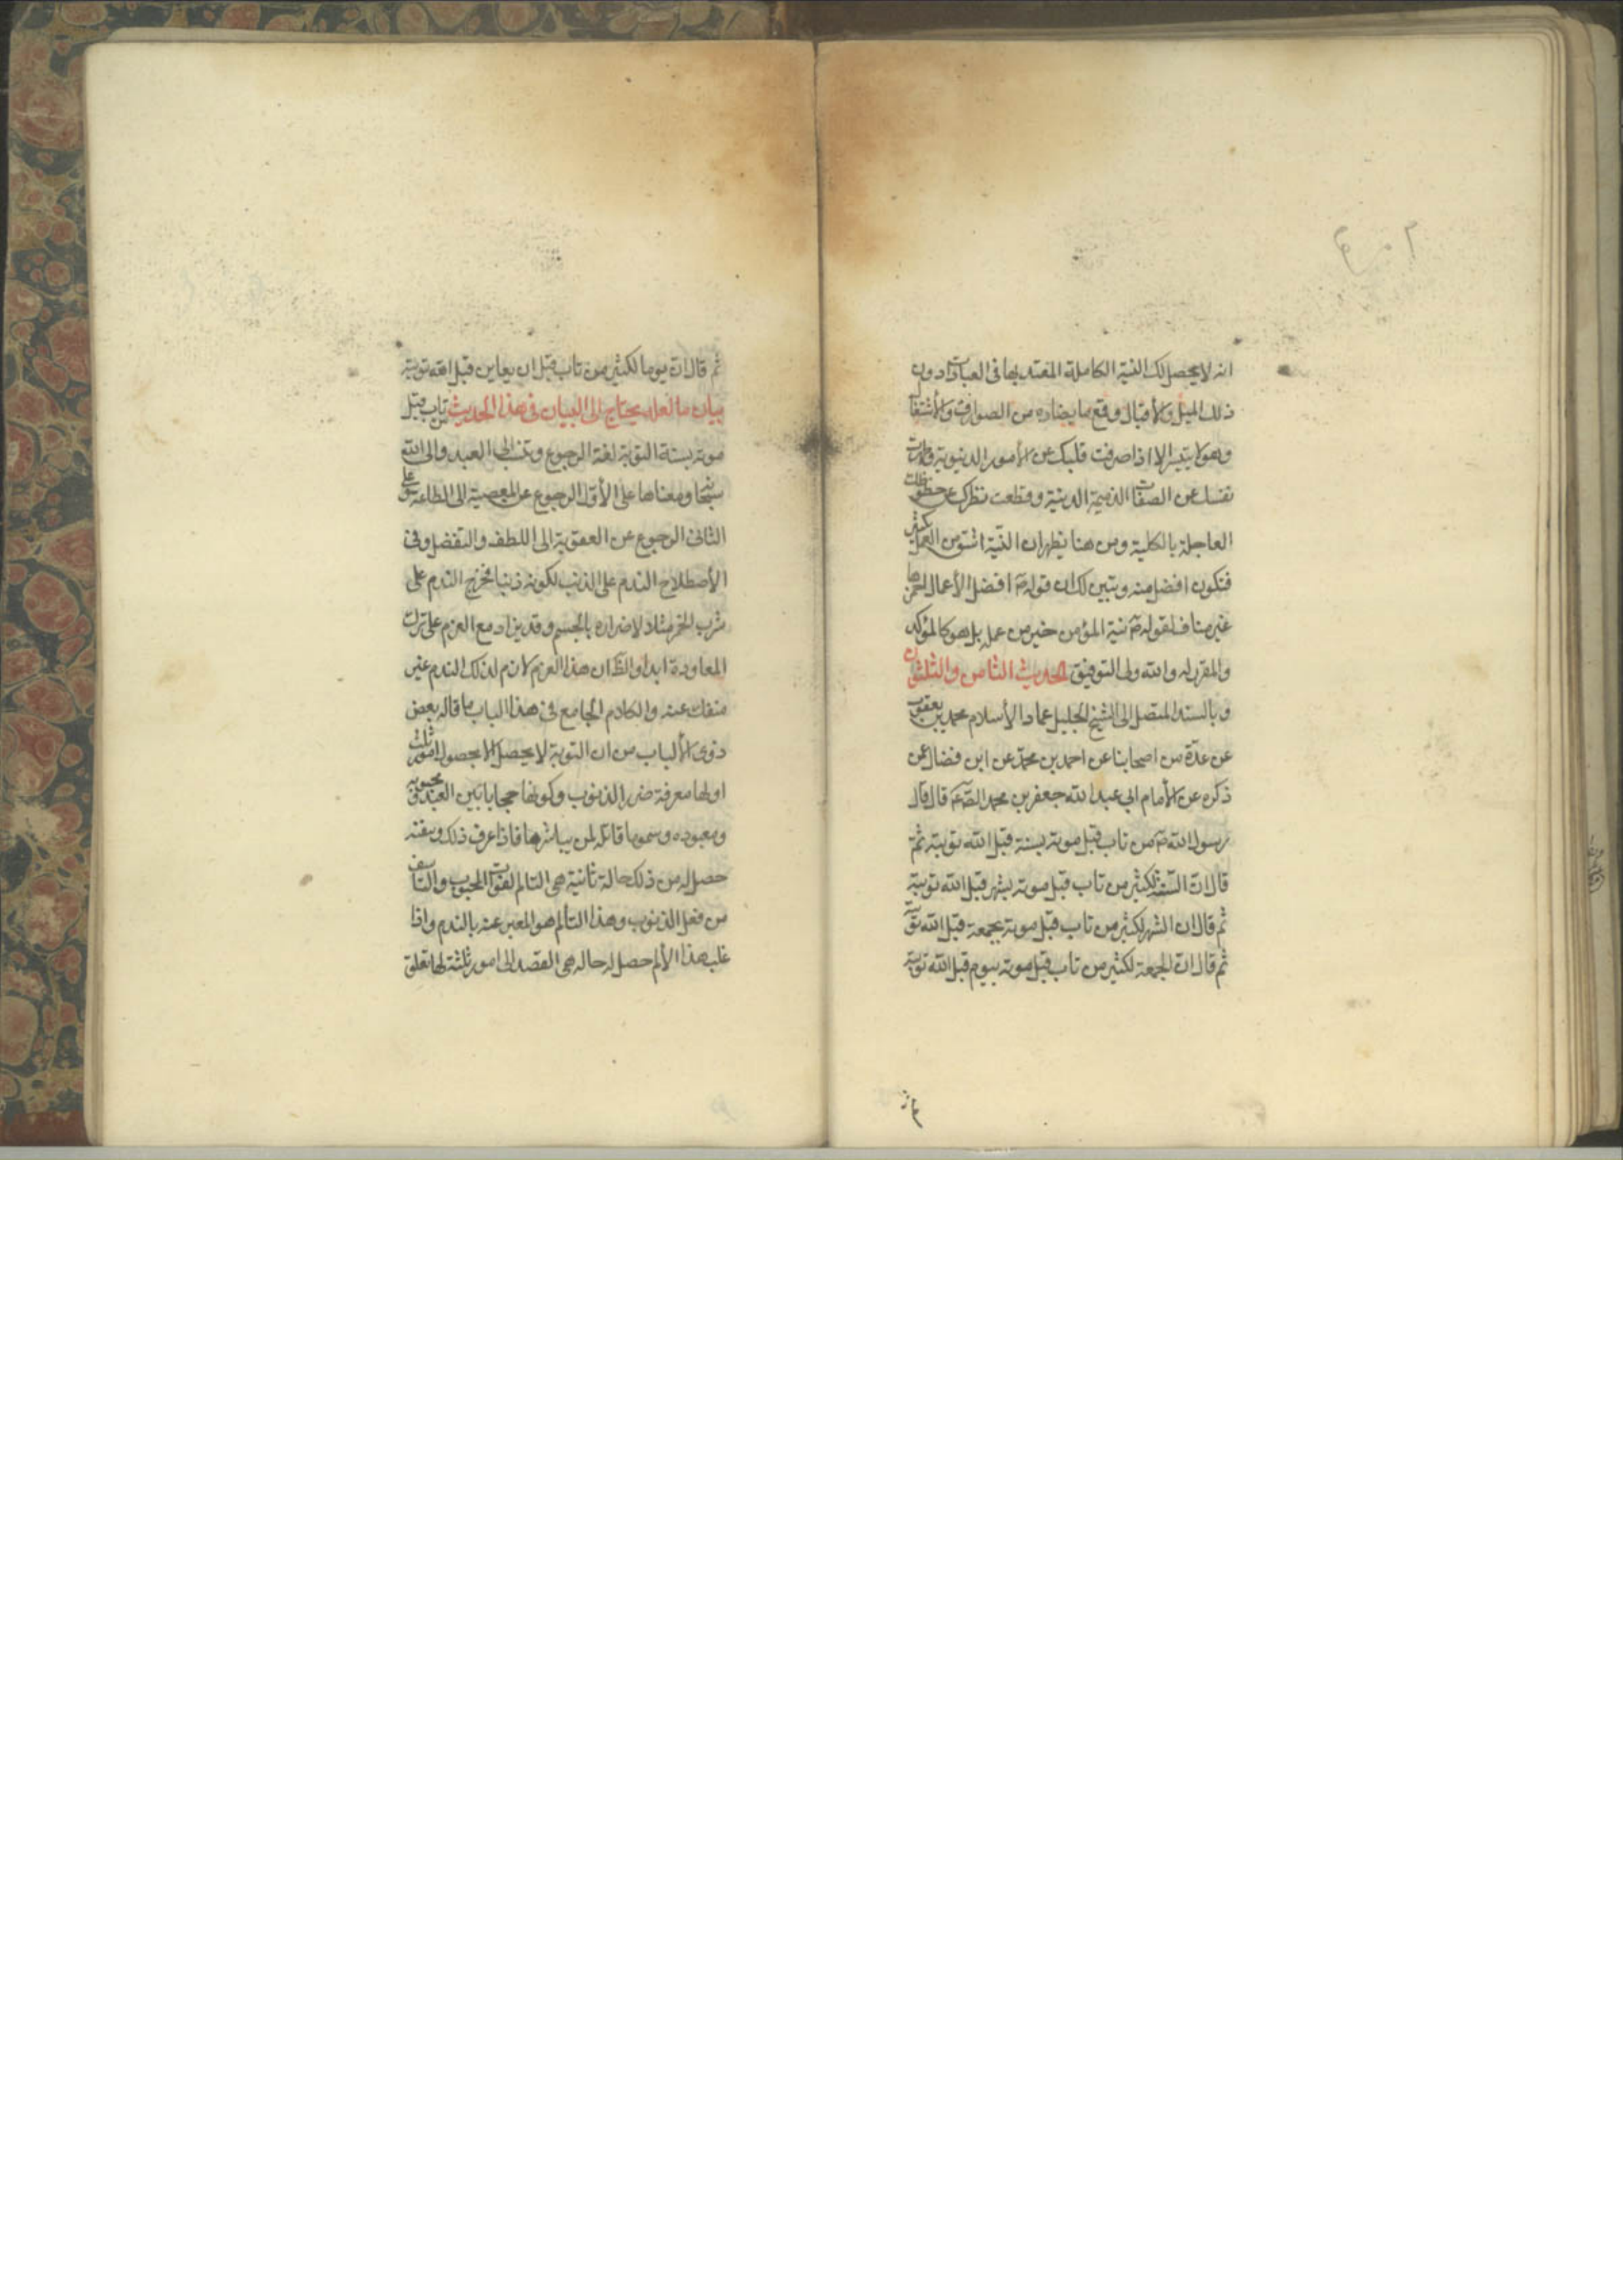 انه لا يحصل لك النية الكاملة المعتد بها فى العبادات دون
ذلك الميل والأقبال وقع ما يضاده من الصوارف والأشتغا
وهو لا يتيسر الا اذا صرفت قلبك عن الأمور الدنيوية وطهرت
نفسك عن الصفات الذميمة الدينية وقطعت نظرك عن حظوظك
العاجلة بالكلية ومن هنا يظهر ان النية اشق من العمل بكثير
فتكون افضل منه ويتبين لك ان قوله ص افضل الأعمال احمزها
غير مناف لقوله ص نية المؤمن خير من عمله بل هو كالمؤكد
والمقرر له والله ولى التوفيق الحديث الثامن والثلثون
وبالسند المتصل الى الشيخ الجليل عماد الأسلام محمد بن يعقوب
عن عدة من اصحابنا عن احمد بن محمد عن ابن فضال عمن
ذكره عن الأمام ابي عبد الله جعفر بن محمد الص ع قال قال
رسول الله ص من تاب قبل موته بسنة قبل الله توبته ثم
قال ان السنة لكثير من تاب قبل موته بشهر قبل الله توبته
ثم قال ان الشهر لكثير من تاب قبل موته بجمعة قبل الله توبته
ثم قال ان الجمعة لكثير من تاب قبل موته بيوم قبل الله توبته
ثم قال ان يوما لكثير من تاب قبل ان يعاين قبل الله توبته
بيان ما لعله يحتاج الى البيان فى هذا الحديث من تاب قبل
موته بسنة التوبة لغة الرجوع وتنسب الى العبد والى الله
سبحا ومعناها على الأول الرجوع عن المعصية الى الطاعة وعلى
الثانى الرجوع عن العقوبة الى اللطف والتفضل وفى
الأصطلاح الندم على الذنب لكونه ذنبا فخرج الندم على
شرب الخمر مثلا لاضراره بالجسم وقد يزاد مع العزم على ترك
المعاودة ابدا والظ ان هذا العزم لازم لذلك الندم غير
منفك عنه والكلام الجامع فى هذا الباب ما قاله بعض
ذوى الألباب من ان التوبة لا يحصل الا بحصول امور ثلث
اولها معرفة ضرر الذنوب وكونها حجابا بين العبد ومحبوبه
ومعبوده وسموما قاتلة لمن يباشرها فاذا عرف ذلك وتيقنه
حصل له من ذلك حالة ثانية هى التالم لفوات المحبوب والتاسف
من فعل الذنوب وهذا التألم هو المعبر عنه بالندم واذا
غلب هذا الألم حصل له حاله هى القصد الى امور ثلثة لها تعلق